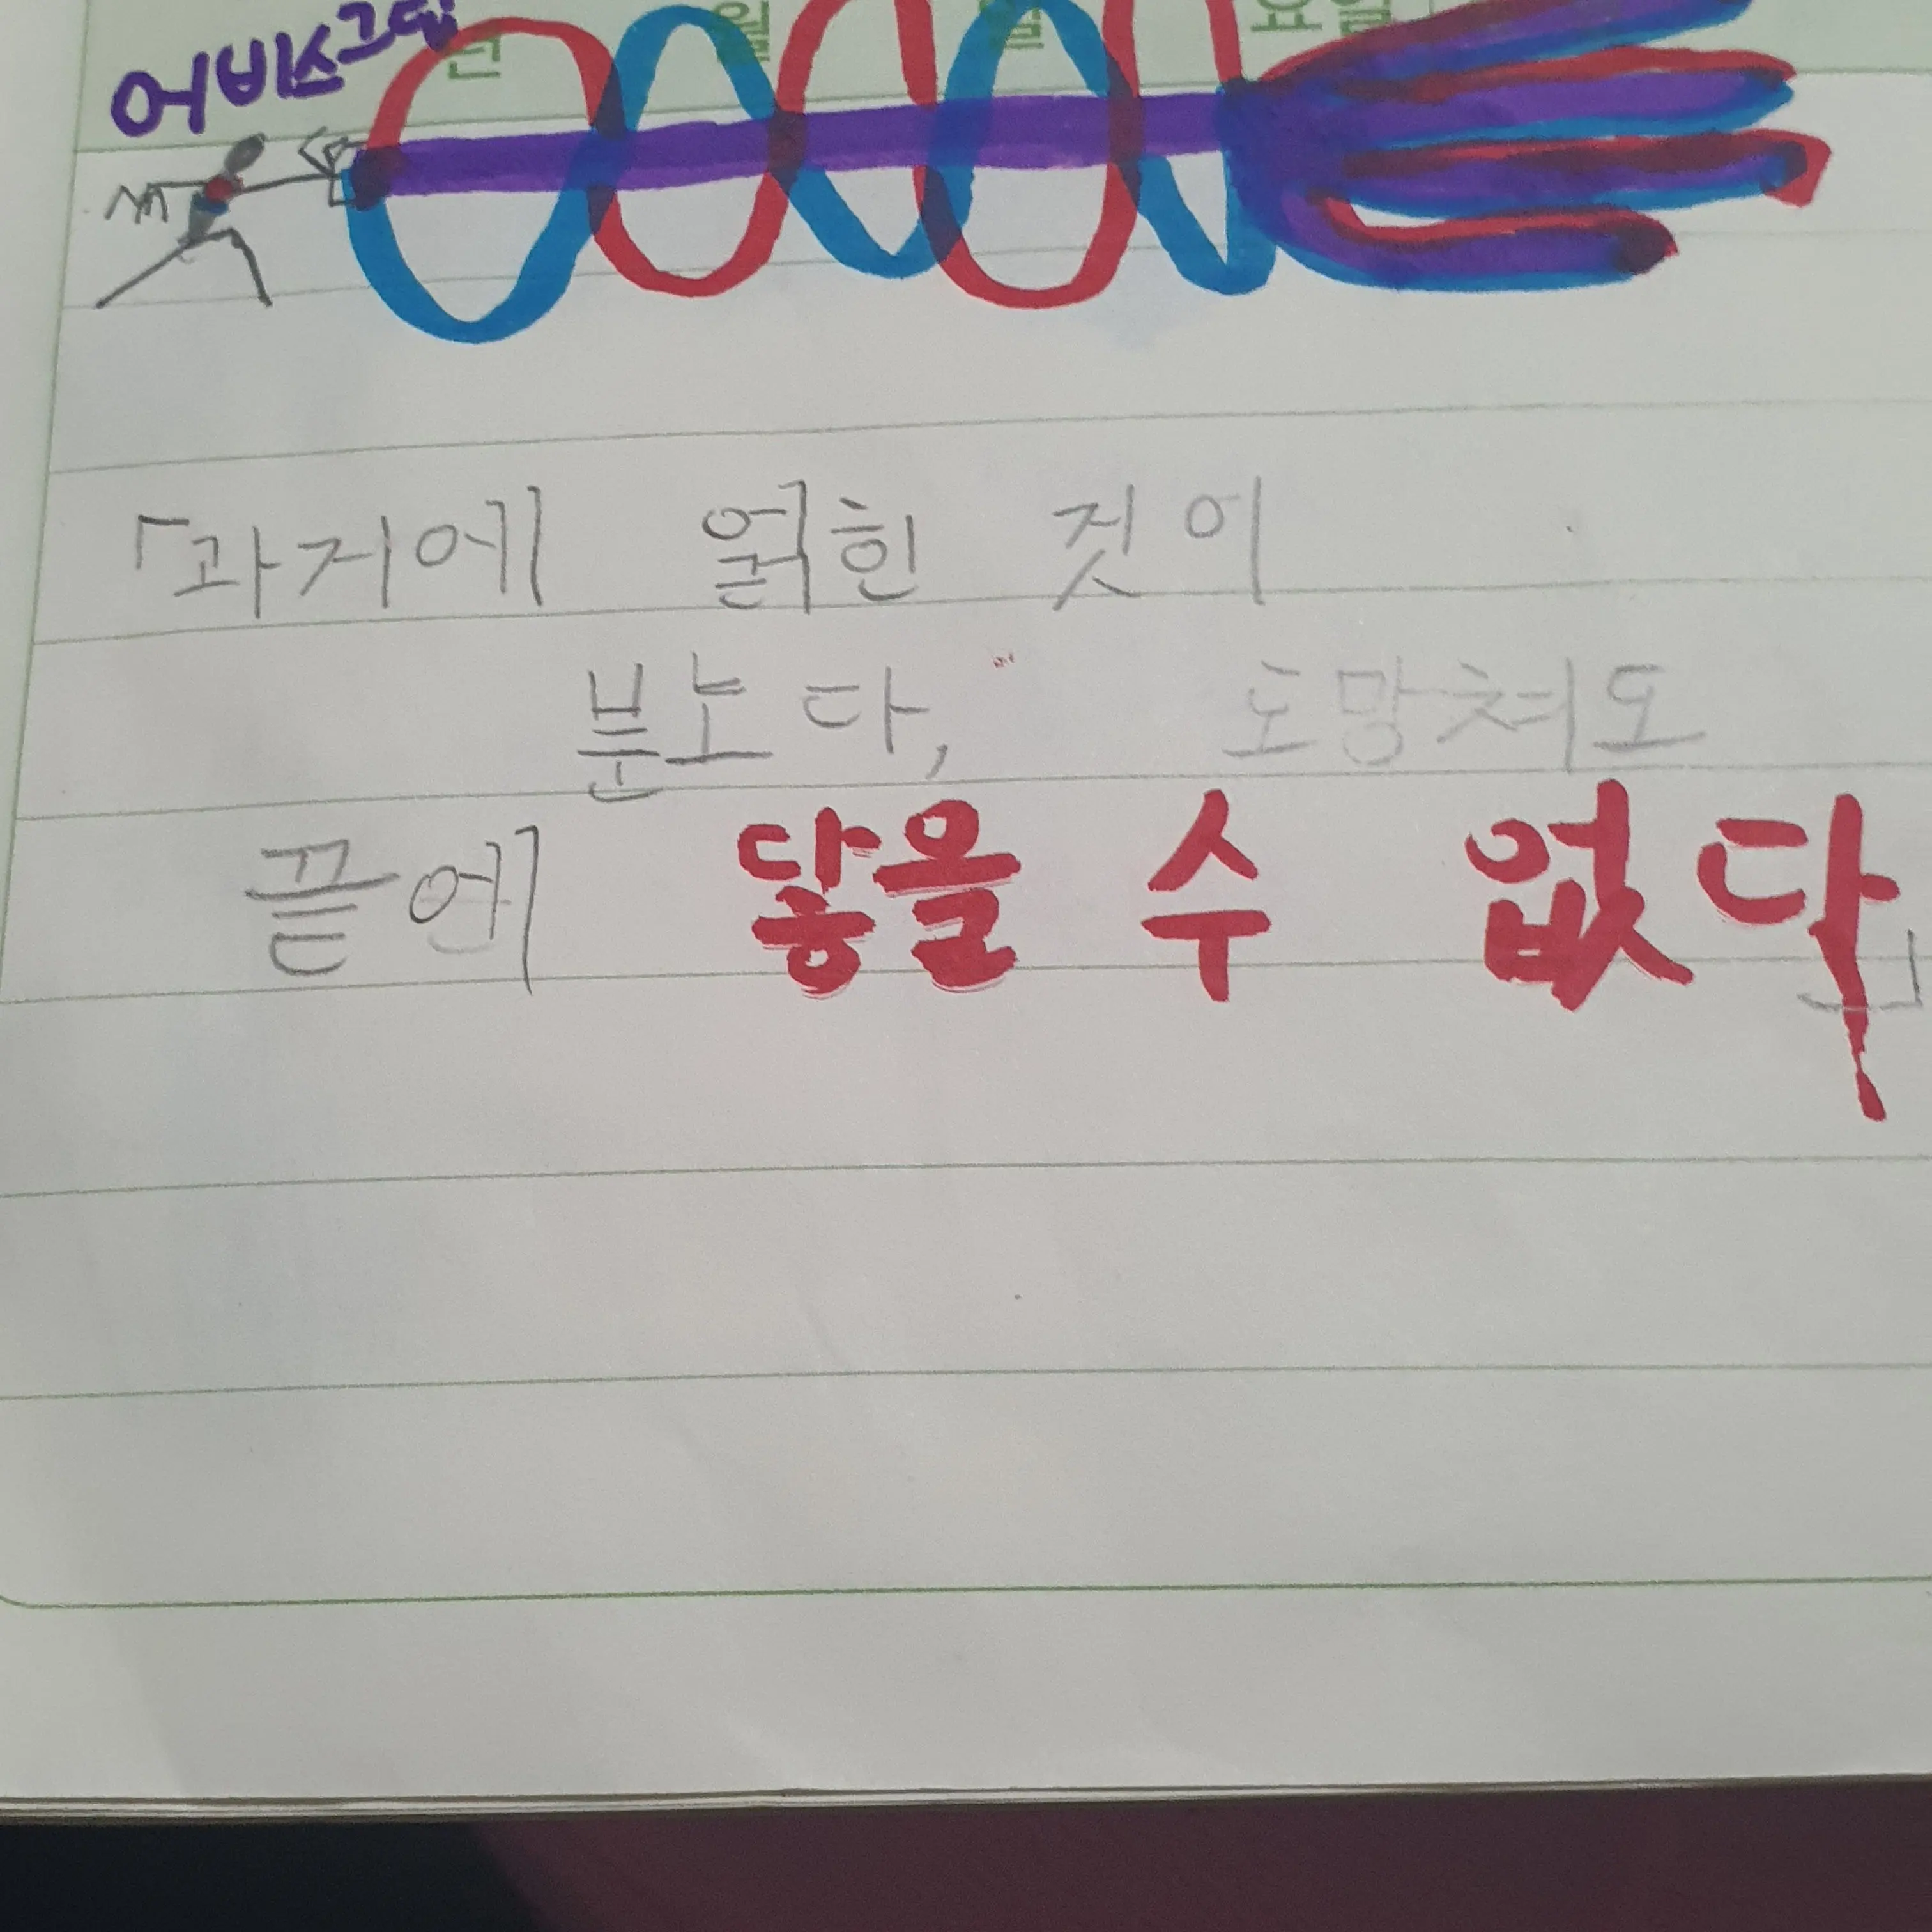 어비스
년 월 일 요일
「과거에 얽힌 것이
분노다, 도망쳐도
끝에 닿을 수 없다」